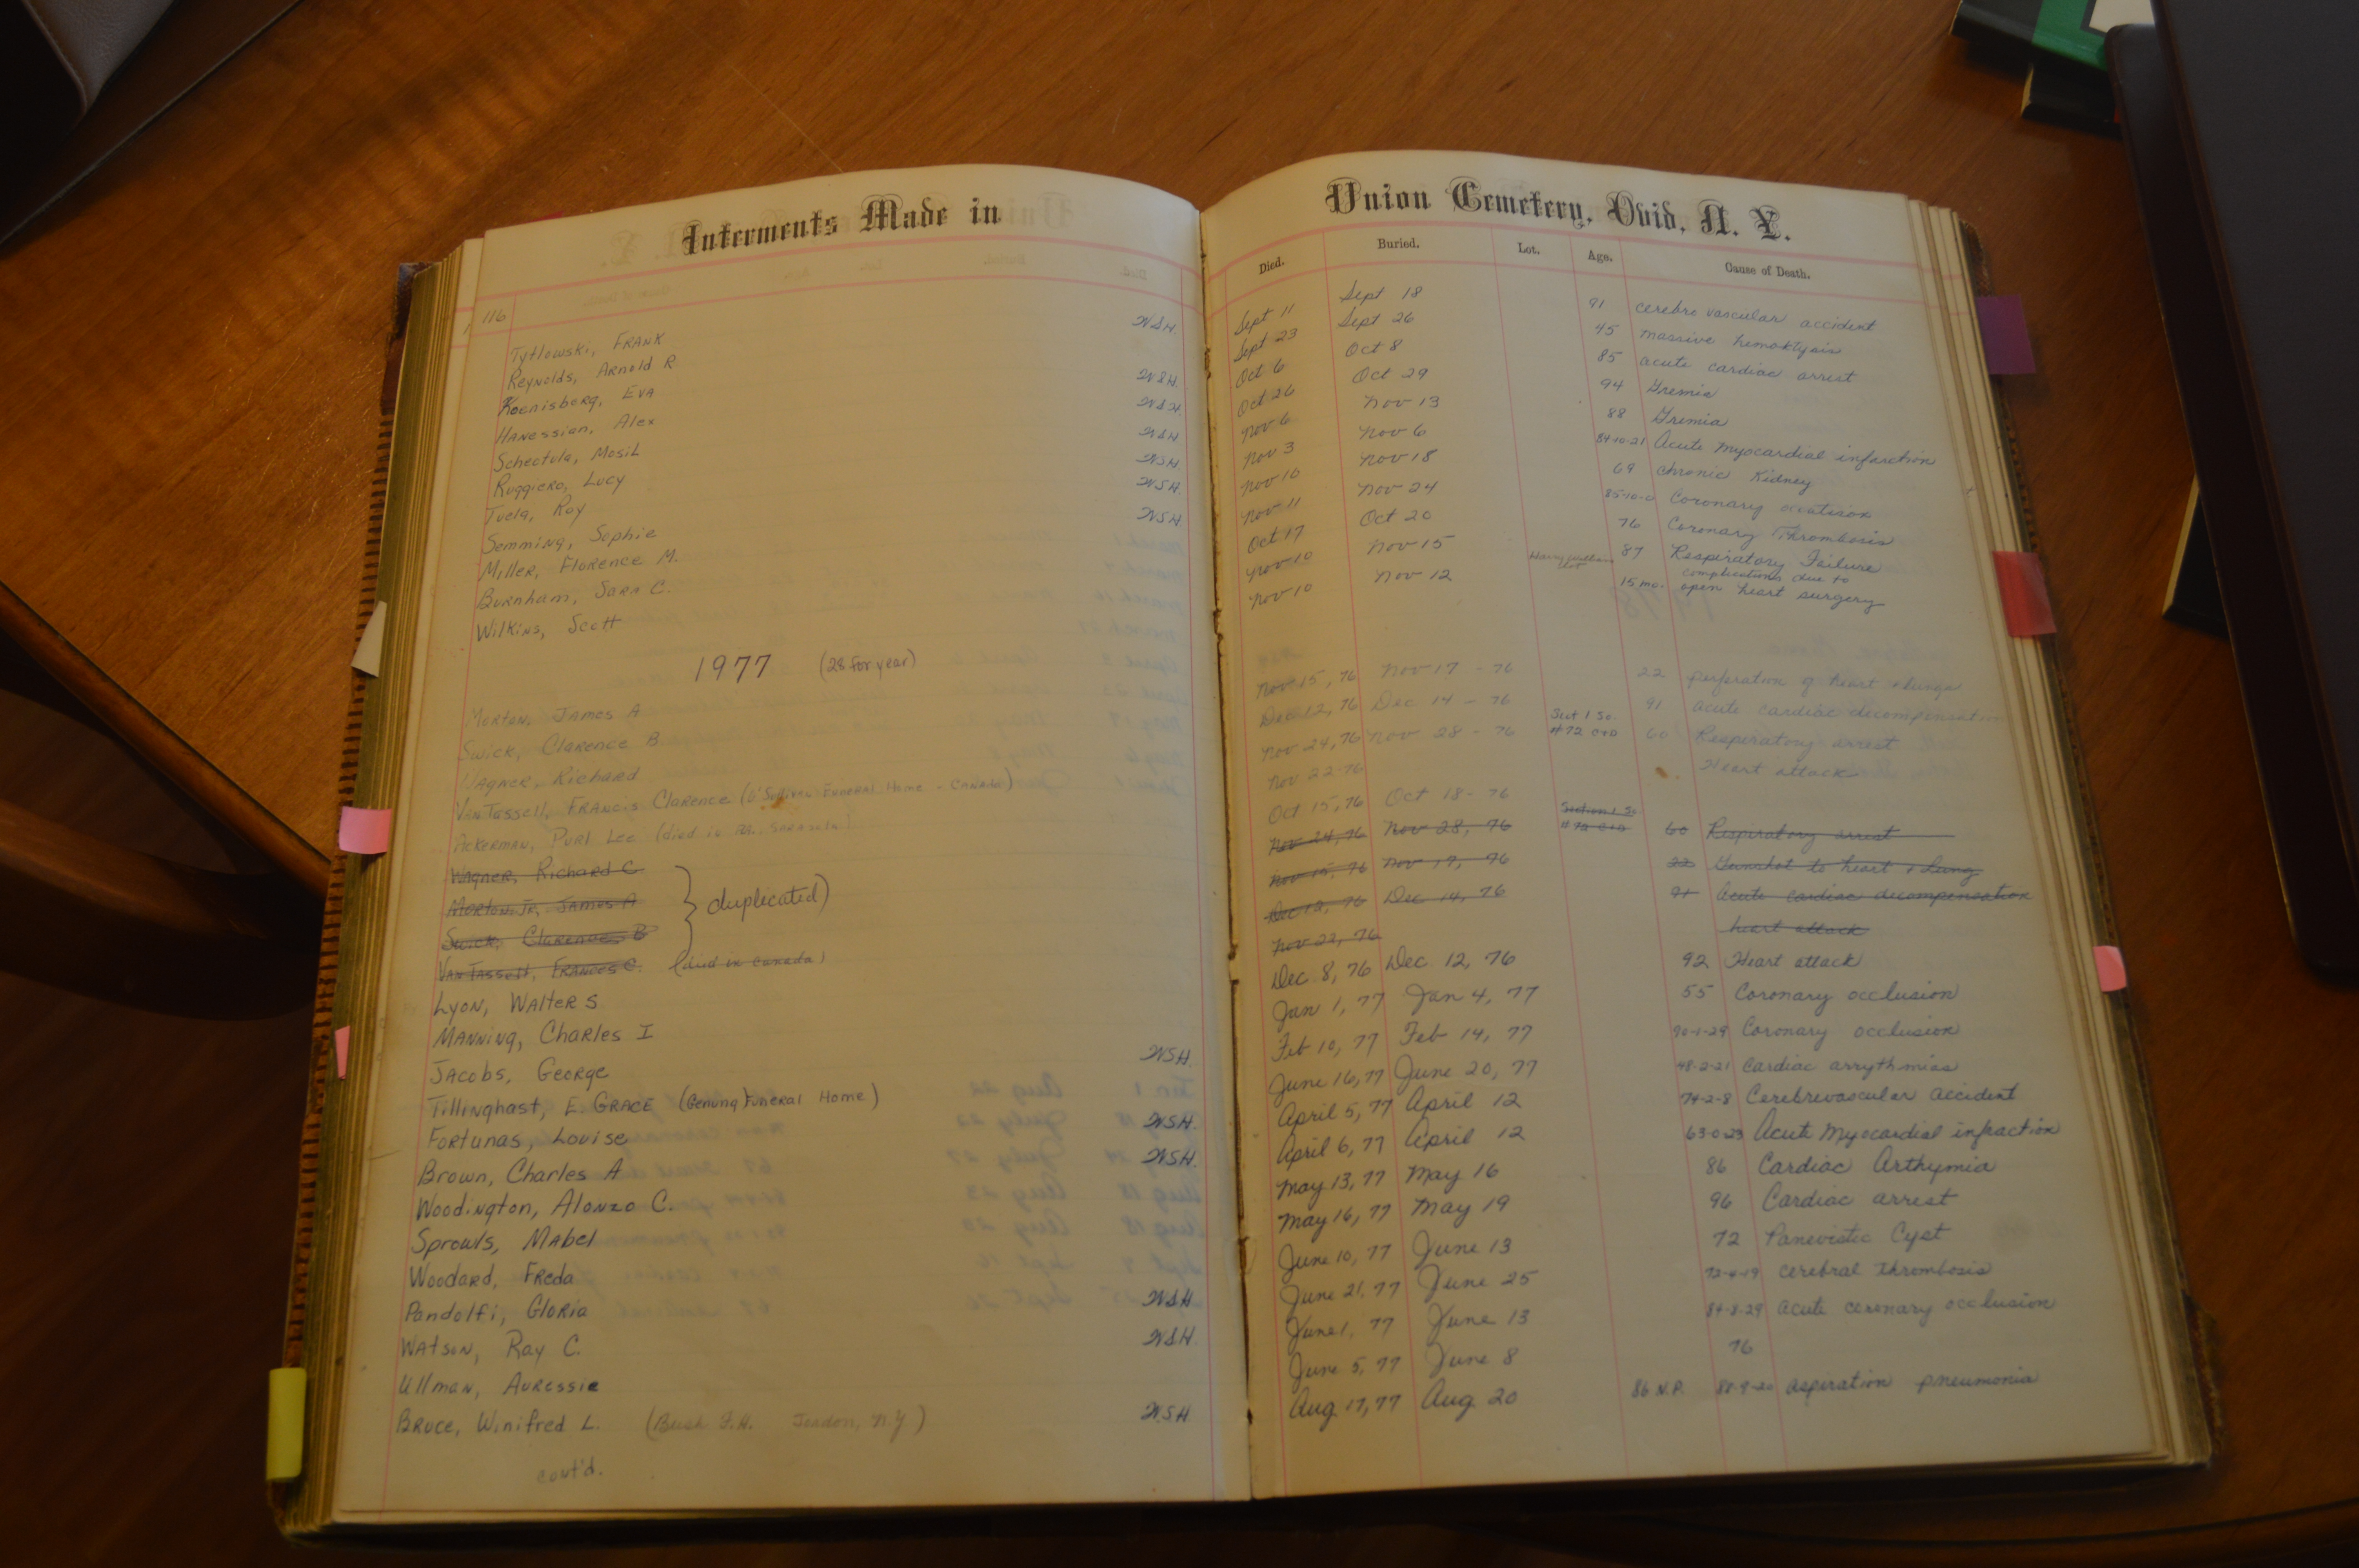 Interments Made in
116
Tytlowski, FRANK WSH.
Reynolds, Arnold R
Koenisberg, EVA WSH.
HANessian, Alex WSH.
Schectula, Mosil WSH
Ruggiero, Lucy WSH.
Tuela, Roy WSH.
Semming, Sophie WSH
Miller, Florence M.
Burnham, Sara C.
Wilkins, Scott
1977 (28 for year)
Morton, James A
Swick, Clarence B.
Wagner, Richard
Van Tassell, Francis Clarence (O'Sullivan Funeral Home - Canada)
Ackerman, Purl Lee (died in Fla., Sarasota)
Wagner, Richard C
Morton Jr, James A } duplicated)
Swick, Clarence B
Van Tassell, Frances C. (died in Canada)
Lyon, Walter S
Manning, Charles I
Jacobs, George WSH.
Tillinghast, E. Grace (Genung Funeral Home)
Fortunas, Louise WSH.
Brown, Charles A WSH.
Woodington, Alonzo C.
Sprowls, Mabel
Woodard, Freda
Pandolfi, Gloria WSH
Watson, Ray C. WSH.
Ullman, Auressie
Bruce, Winifred L. (Bush F.H. N.Y) WSH.
cont'd.
Union Cemetery, Ovid, N. Y.
Died. Buried. Lot. Age. Cause of Death.
Sept 11 Sept 18 91 cerebro vascular accident
Sept 23 Sept 26 45 massive hemoktysis
Oct 6 Oct 8 85 acute cardiac arrest
Oct 26 Oct 29 94 Uremia
Nov 6 Nov 13 88 Uremia
Nov 3 Nov 6 84-10-21 Acute myocardial infarction
Nov 16 Nov 18 69 chronic Kidney
Nov 11 Nov 24 85-10-0 Coronary
Oct 17 Oct 20 76 Coronary Thrombosis
Nov 10 Nov 15 lot 87 Respiratory Failure
Nov 10 Nov 12 15 mo. complications due to
open heart surgery
Nov 15, 76 Nov 17 - 76 22 perforation of heart & lungs
Dec 12, 76 Dec 14 - 76 91 acute cardiac decompensation
Nov 24, 76 Nov 28 - 76 Sect 1 So. #72 C+D 60 Respiratory arrest
Nov 22-76 Heart attack
Oct 15, 76 Oct 18-76
Nov 24, 76 Nov 28, 76 Section 1 So. #72 C+D 60 Respiratory arrest
Nov 15, 76 Nov 17, 76 22 Gunshot to heart & Lung
Dec 12, 76 Dec 14, 76 91 Acute cardiac decompensation
Nov 22, 76 heart attack
Dec 8, 76 Dec 12, 76 92 Heart attack
Jan 1, 77 Jan 4, 77 55 Coronary occlusion
Feb 10, 77 Feb 14, 77 90-1-29 Coronary occlusion
June 16, 77 June 20, 77 48-2-21 Cardiac arrythmias
April 5, 77 April 12 74-2-8 Cerebrevascular accident
April 6, 77 April 12 63-0-23 Acute Myocardial infraction
May 13, 77 May 16 86 Cardiac Arthymia
May 16, 77 May 19 96 Cardiac arrest
June 10, 77 June 13 72 Cyst
June 21, 77 June 25 72-4-19 cerebral thrombosis
June 1, 77 June 13 84-8-29 acute coronary occlusion
June 5, 77 June 8 76
Aug 17, 77 Aug 20 86 N.P. 88-9-20 aspiration pneumonia